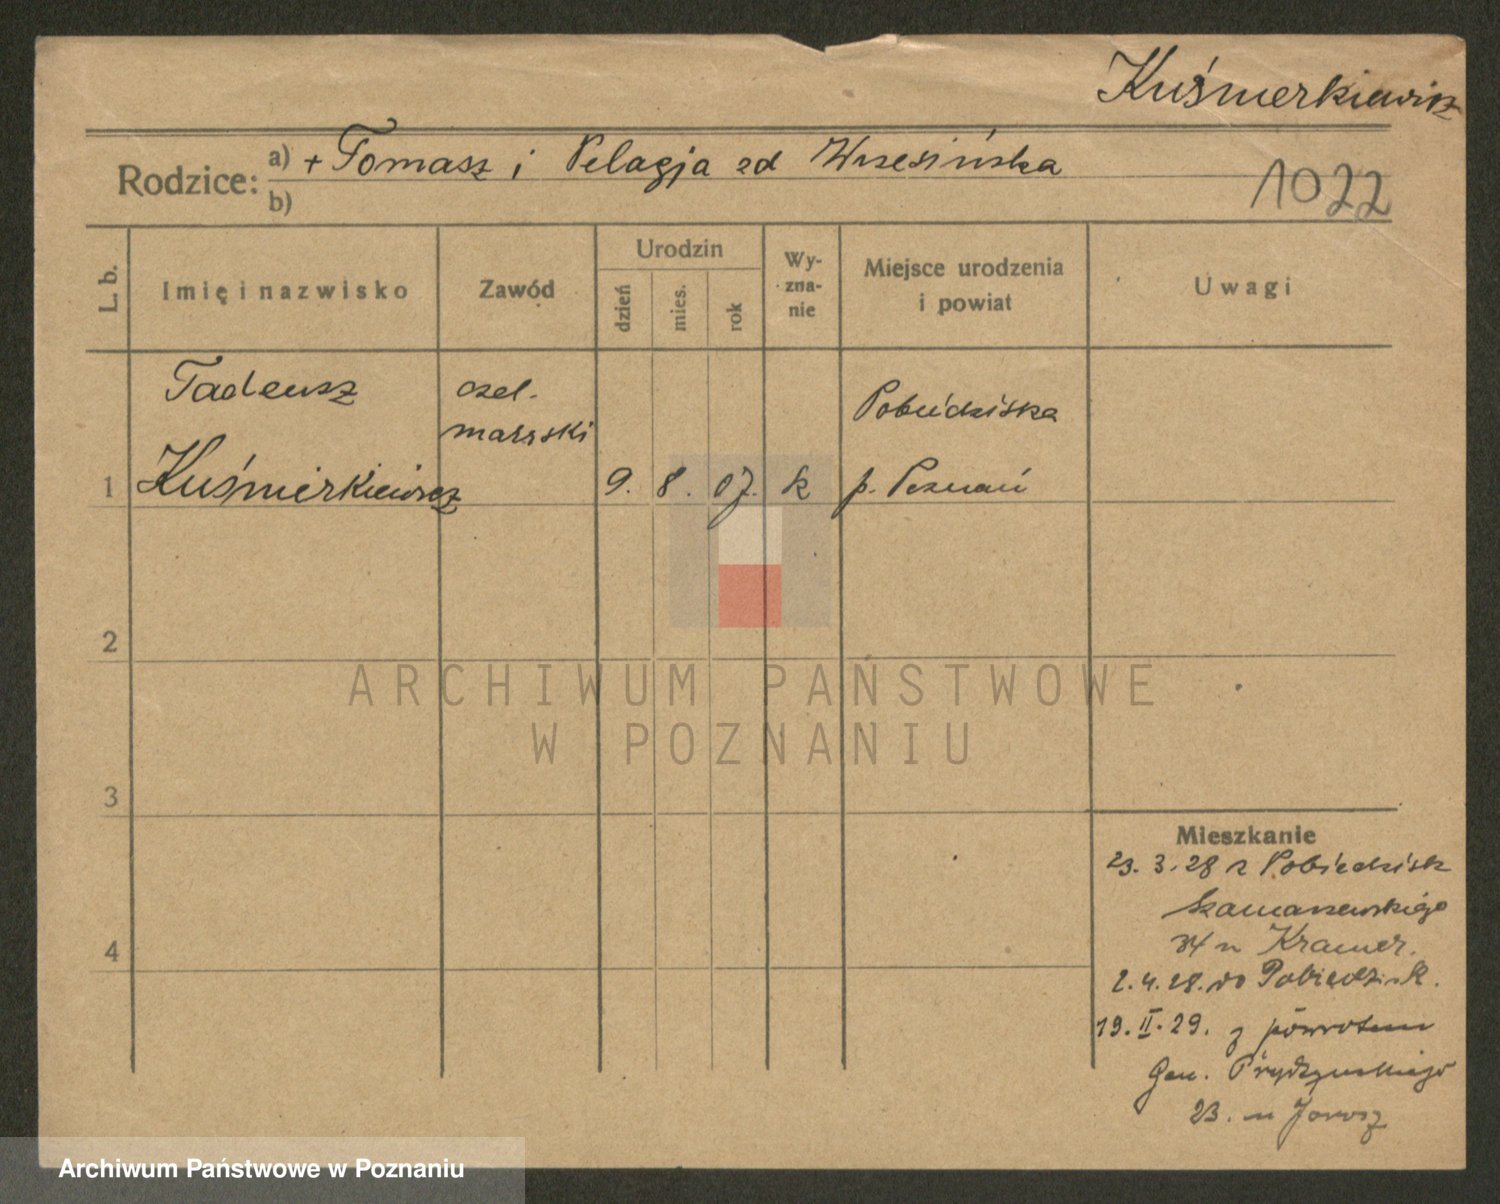 Kuśmerkiewicz
Rodzice: a) + Tomasz i Pelagja zd Wrzesińska
b)
1022
L. b.
Imię i nazwisko
Zawód
Urodzin
dzień
mies.
rok
Wy-
zna-
nie
Miejsce urodzenia
i powiat
Uwagi
Tadeusz
czel.
marski
Pobiedziska
1 Kuśmierkiewicz 9. 8. 07. k p. Poznań
2
ARCHIWUM PAŃSTWOWE
W POZNANIU
3
Mieszkanie
23. 3. 28 z Pobiedzisk
Szamarzewskiego
u Kramer.
2. 4. 28. do Pobiedzisk.
4
19. II. 29. z powrotem
Gen. Prądzyńskiego
23. u Jarosz
Archiwum Państwowe w Poznaniu